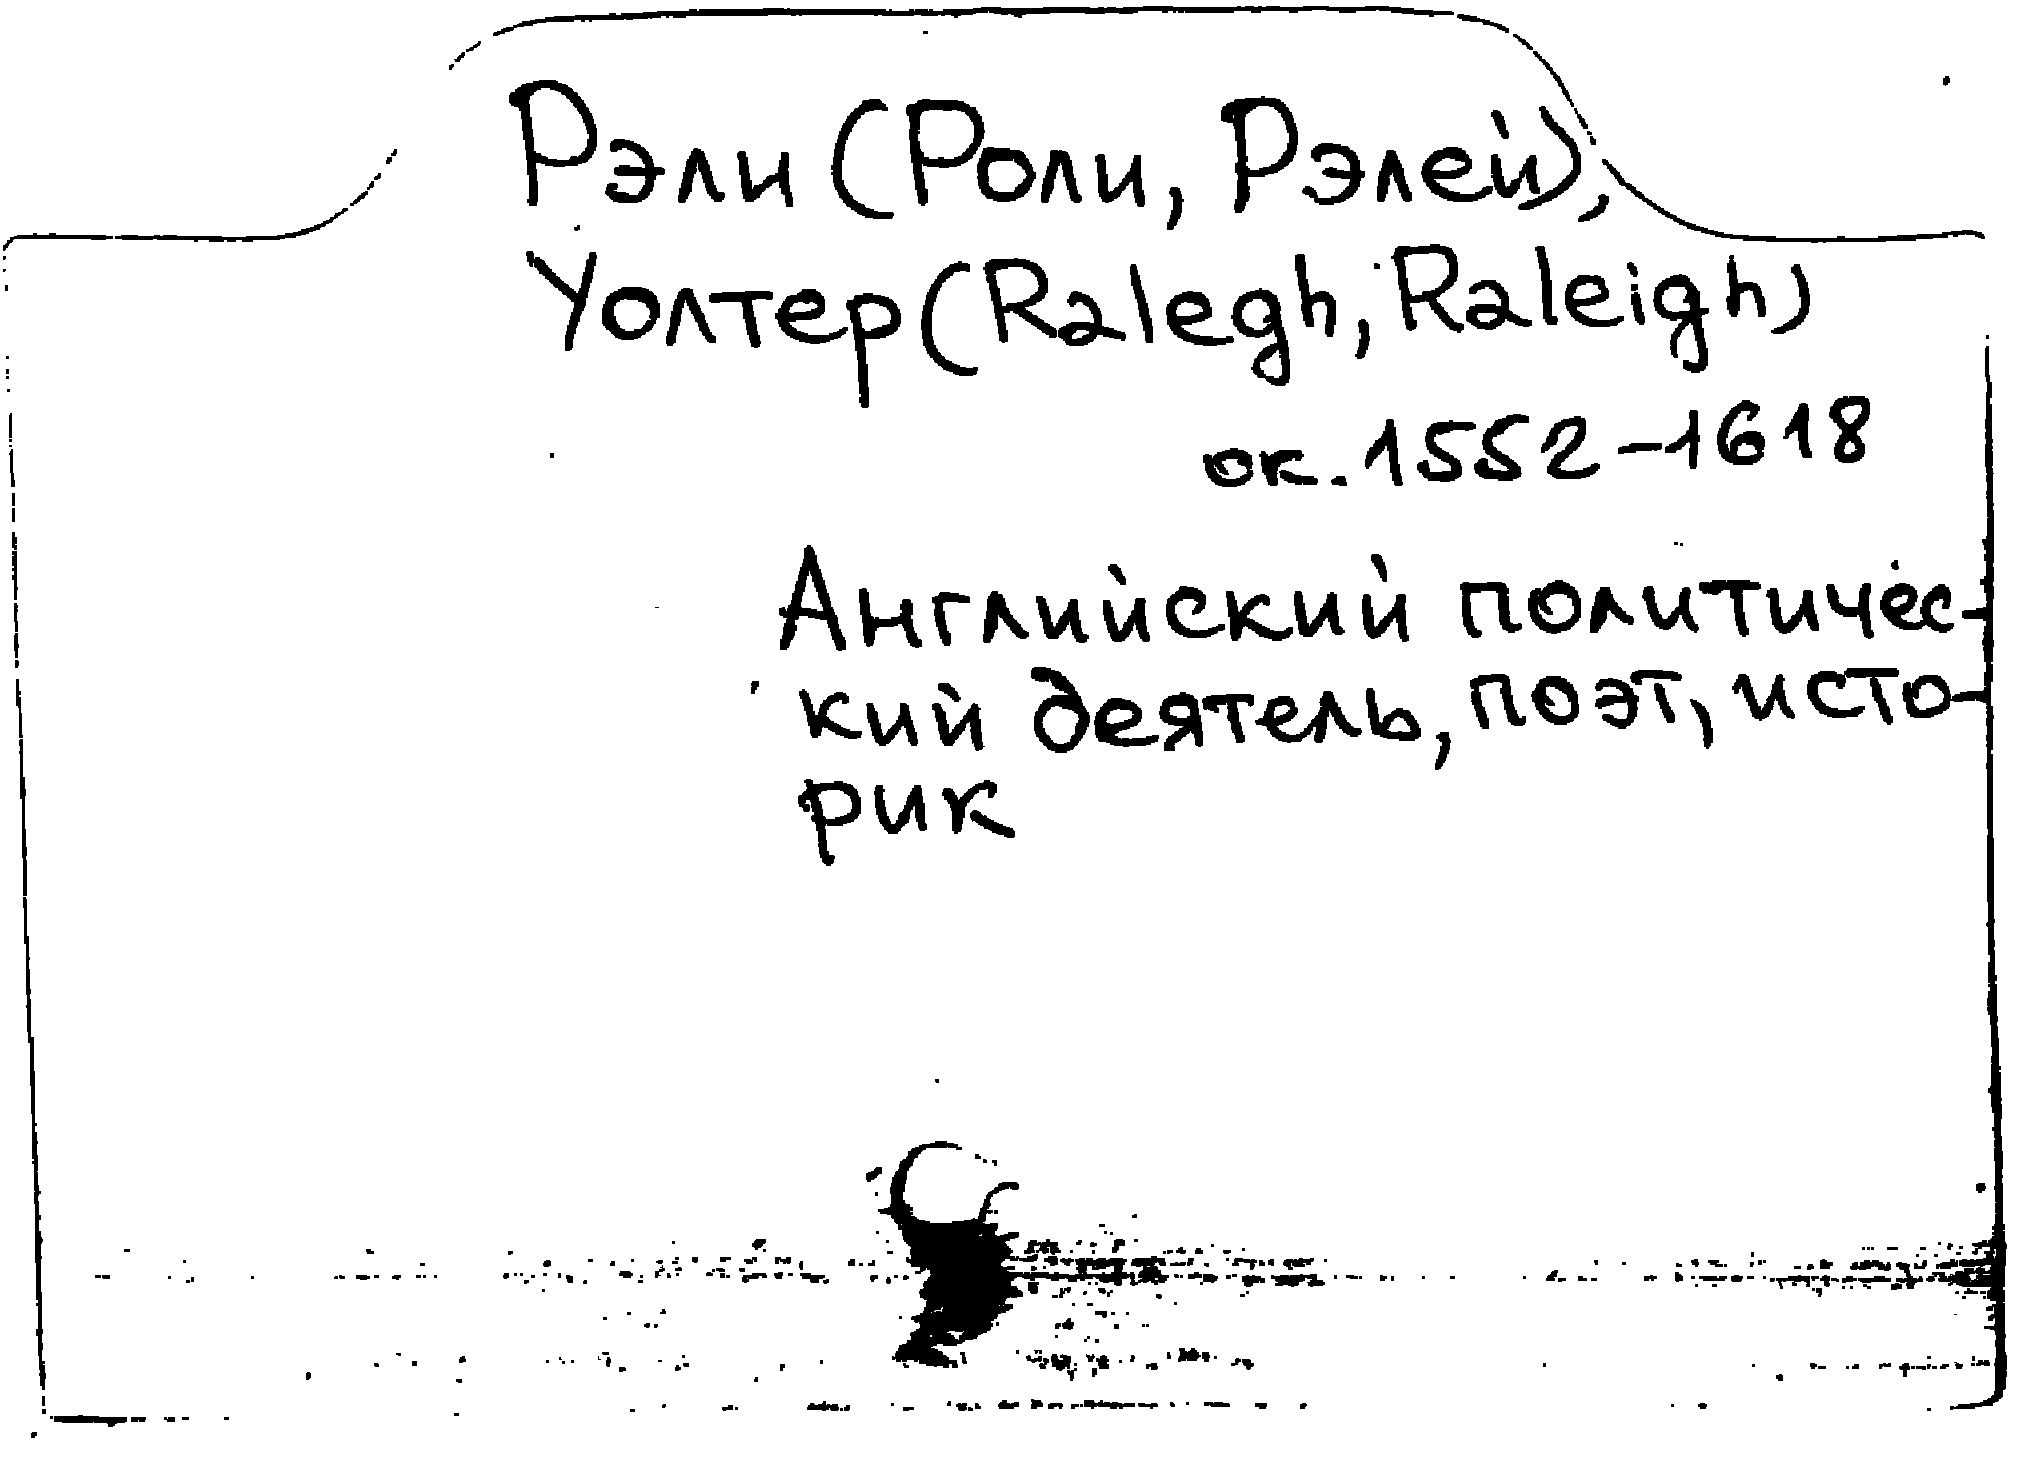 Рэли (Роли, Рэлей),
Уолтер (Ralegh, Raleigh)
ок. 1552-1618
Английский политичес-
кий деятель, поэт, исто-
рик